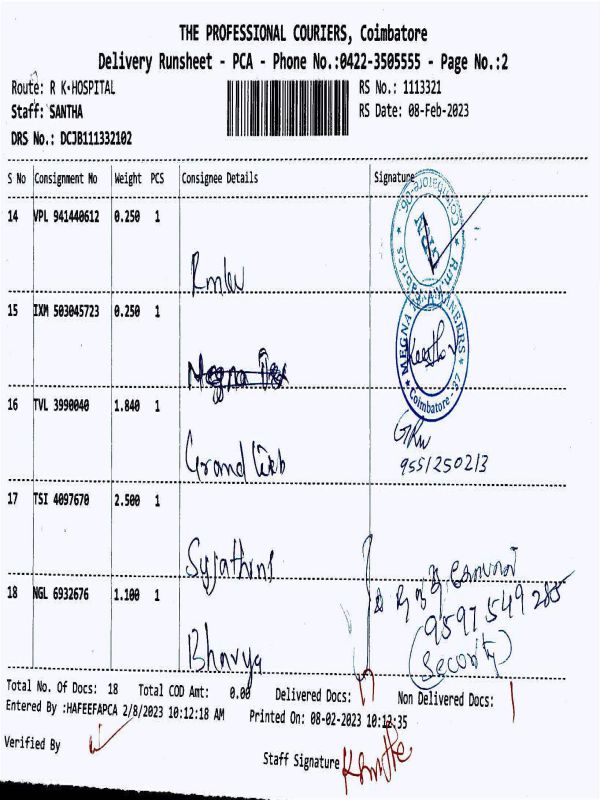 THE PROFESSIONAL COURIERS, Coimbatore
Delivery Runsheet - PCA - Phone No.:0422-3505555 - Page No.:2
Route: R K-HOSPITAL
RS No.: 1113321
Staff: SANTHA
RS Date: 08-Feb-2023
DRS No.: DCJB111332102
S No Consignment No Weight PCS Consignee Details Signature
14 VPL 941440612 0.250 1
15 IXM 503045723 0.250 1
Megna Tex
MEGNA ENGINEERS
Coimbatore - 37
16 TVL 3990040 1.840 1
Grand
9551250213
17 TSI 4097670 2.500 1
18 NGL 6932676 1.100 1
9597549285
(Security)
Bhavya
Total No. Of Docs: 18 Total COD Amt: 0.00 Delivered Docs: 17 Non Delivered Docs: 1
Entered By :HAFEEFAPCA 2/8/2023 10:12:18 AM Printed On: 08-02-2023 10:12:35
Verified By
Staff Signature